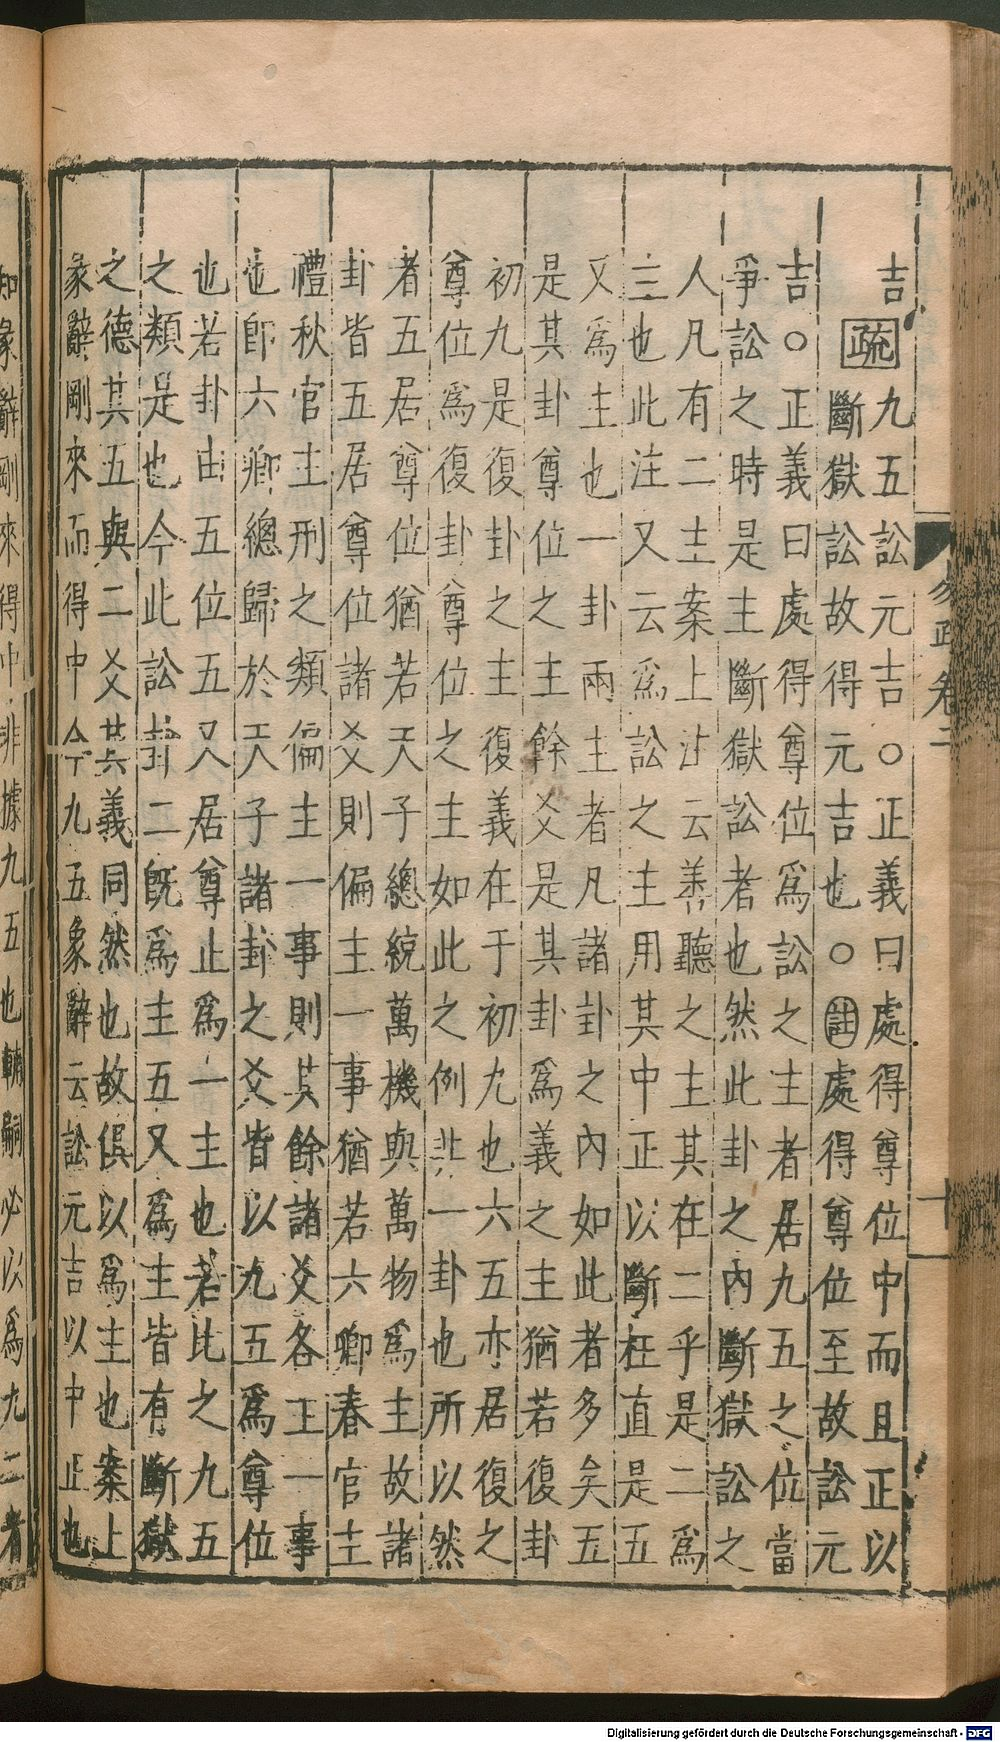 吉疏九五訟元吉○正義曰處得尊位中而且正以
斷獄訟故得元吉也○註處得尊位至故訟元
吉○正義曰處得尊位爲訟之主者居九五之位當
爭訟之時是主斷獄訟者也然此卦之內斷獄訟之
人凡有二主案上註云善聽之主其在二乎是二爲
主也此注又云爲訟之主用其中正以斷枉直是五
又爲主也一卦兩主者凡諸卦之內如此者多矣五
是其卦尊位之主餘爻是其卦爲義之主猶若復卦
初九是復卦之主復義在于初九也六五亦居復之
尊位爲復卦尊位之主如此之例非一卦也所以然
者五居尊位猶若天子總統萬機與萬物爲主故諸
卦皆五居尊位諸爻則偏主一事猶若六卿春官主
禮秋官主刑之類偏主一事則其餘諸爻各主一事
也卽六卿總歸於天子諸卦之爻皆以九五爲尊位
也若卦由五位五又居尊止爲一主也若比之九五
之類是也今此訟卦二旣爲主五又爲主皆有斷獄
之德其五與二爻其義同然也故俱以爲主也案上
彖辭剛來而得中今九五象辭云訟元吉以中正也
知彖辭剛來得中非據九五也輔嗣必以爲九二者
Digitalisierung gefördert durch die Deutsche Forschungsgemeinschaft - DFG